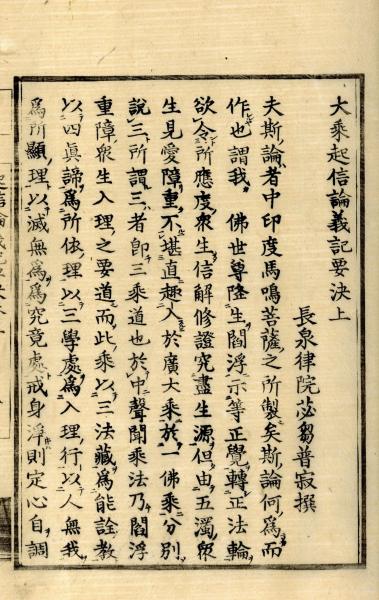 大乘起信論義記要決上
長泉律院苾芻普寂撰
夫斯論者中印度馬鳴菩薩之所製矣斯論何爲而
作也謂我佛世尊降生閻浮示等正覺轉正法輪
欲令所應度衆生信解修證究盡生源但由五濁衆
生見愛障重不堪直趣入於廣大乘於一佛乘分別
說三所謂三者卽三乘道也於中聲聞乘法乃閻浮
重障衆生入理之要道而此乘以三法藏爲能詮教
以四眞諦爲所依理以三學處爲入理行以人無我
爲所顯理以滅無爲爲究竟處戒身淨則定心自調